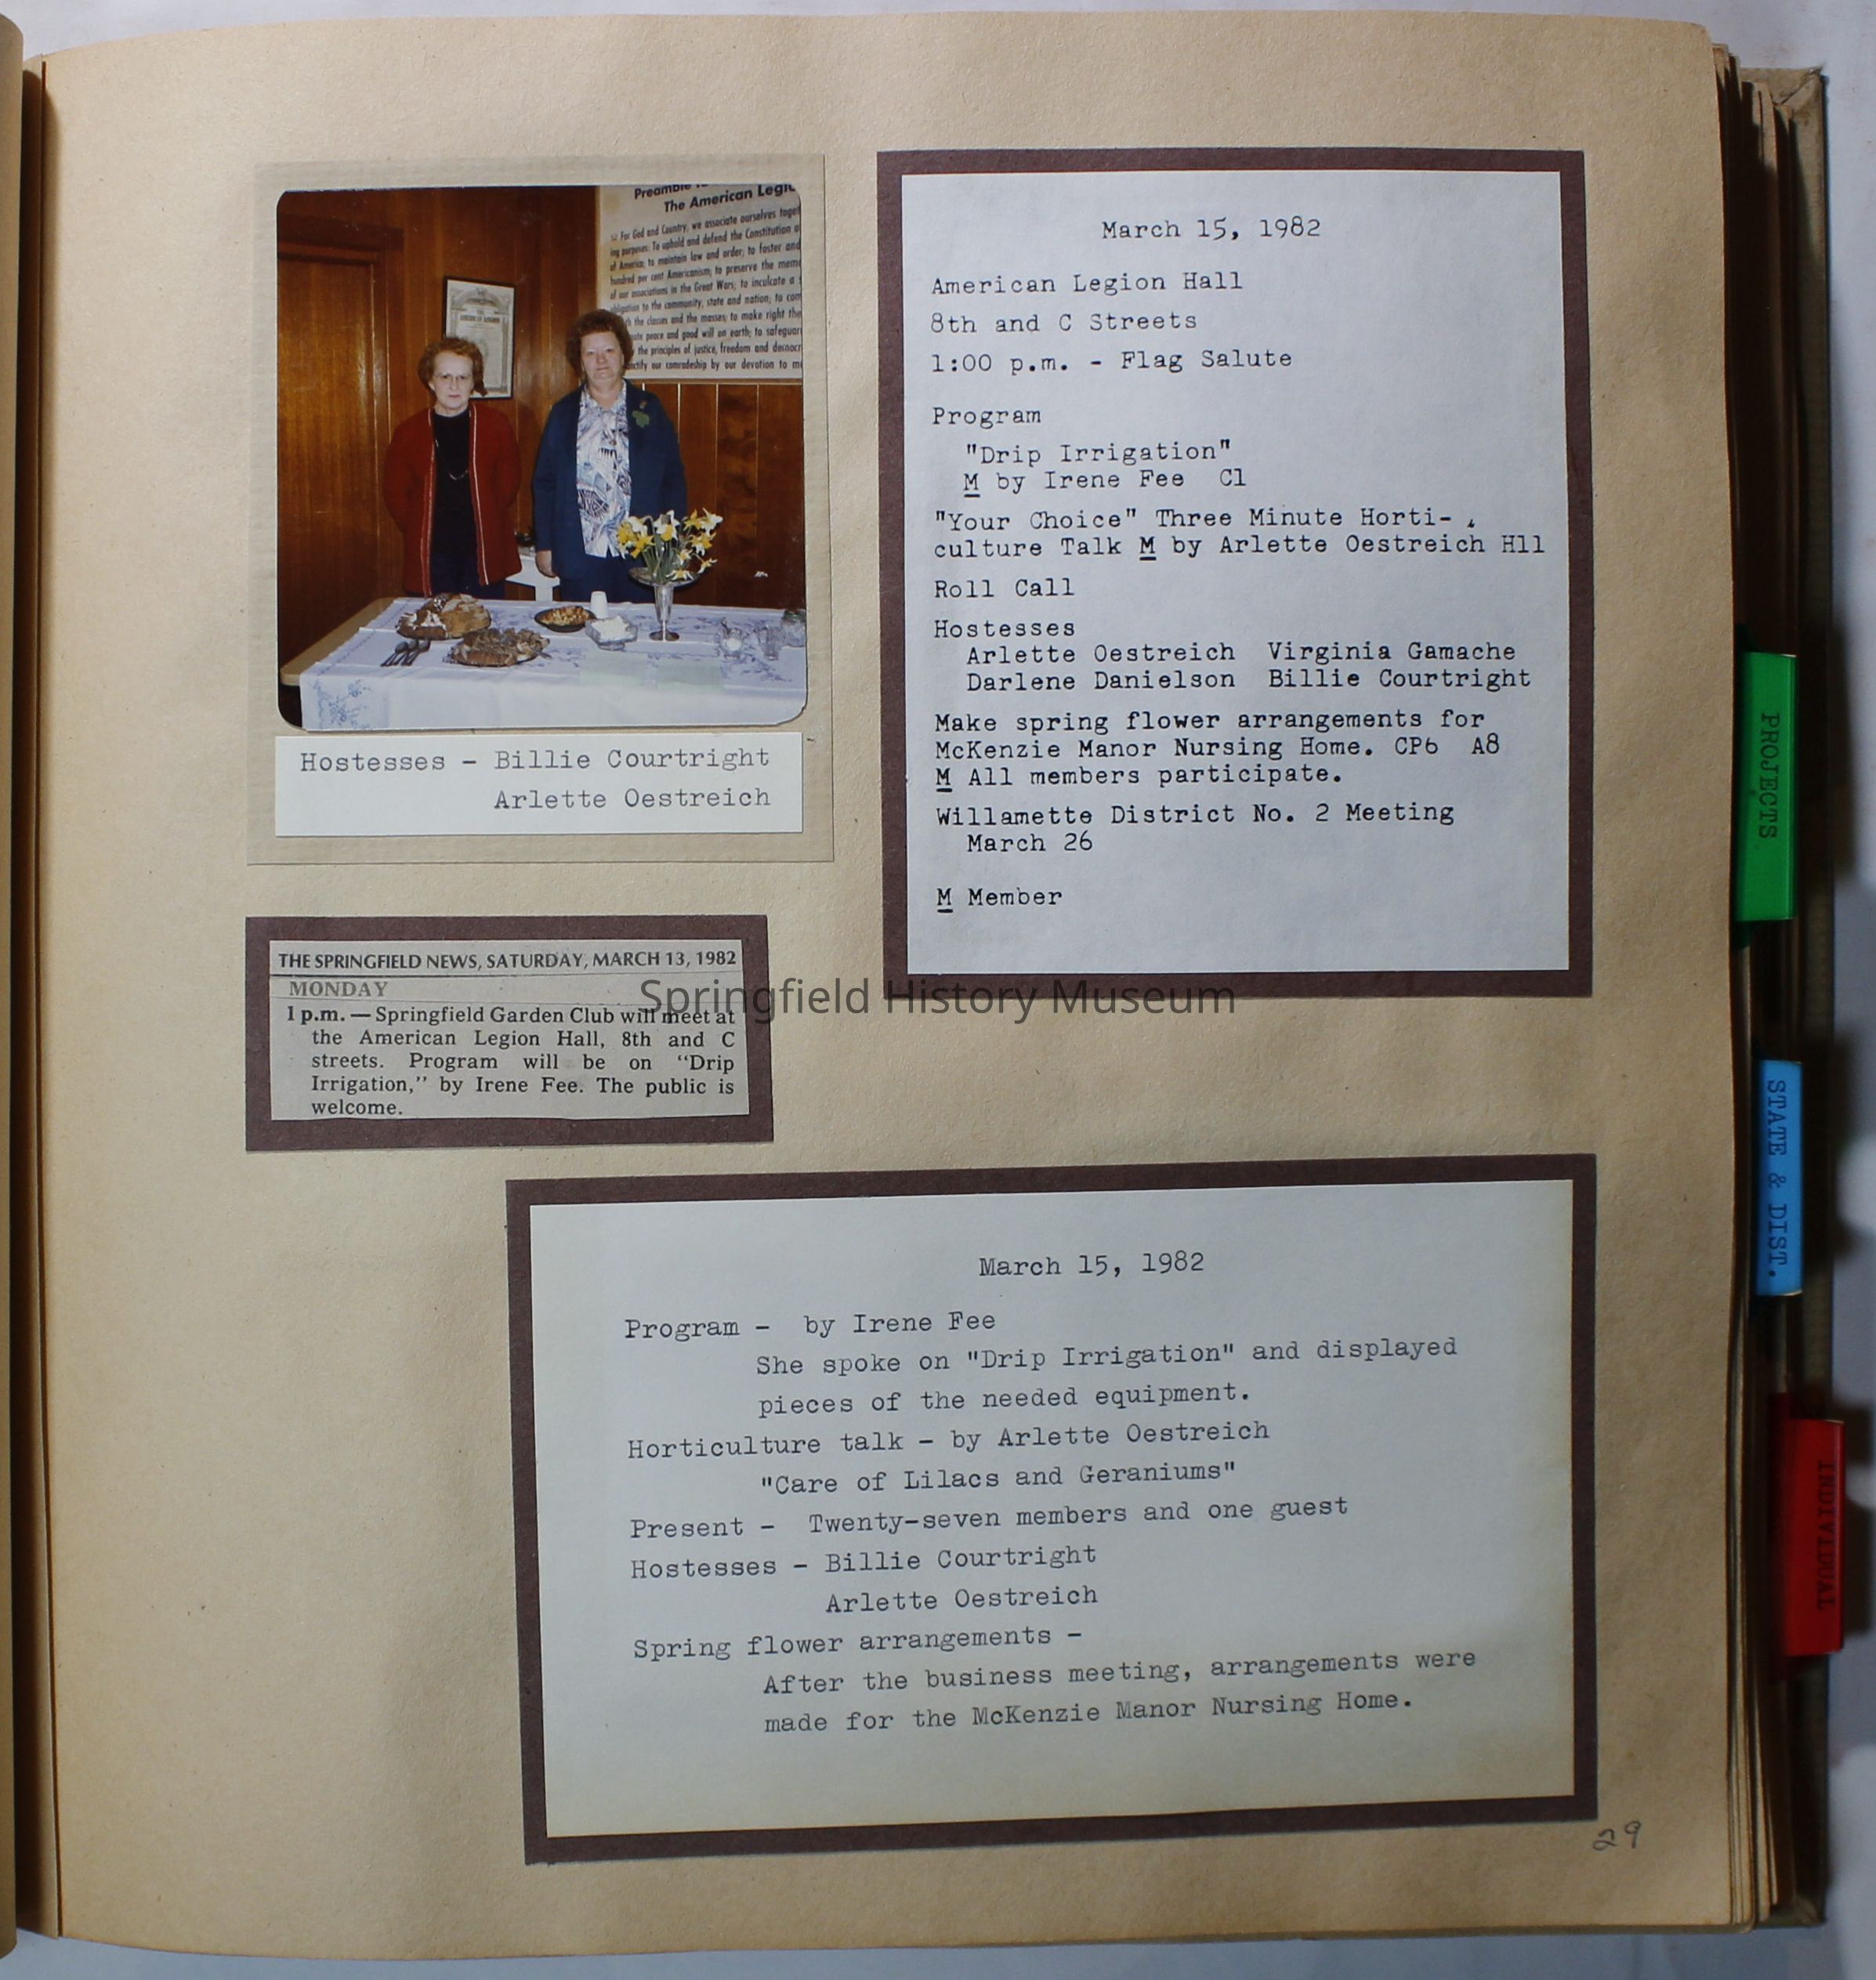 Preamble
The American Legi
For God and Country, we associate ourselves toget
ing purposes: To uphold and defend the Constitution o
of America; to maintain law and order; to foster and
hundred per cent Americanism; to preserve the mem
of our associations in the Great Wars; to inculcate a
obligation to the community, state and nation; to com
the classes and the masses; to make right the
peace and good will on earth; to safeguar
the principles of justice, freedom and democr
our comradeship by our devotion to m
Hostesses - Billie Courtright
Arlette Oestreich
THE SPRINGFIELD NEWS, SATURDAY, MARCH 13, 1982
MONDAY
1 p.m. — Springfield Garden Club will meet at
the American Legion Hall, 8th and C
streets. Program will be on "Drip
Irrigation," by Irene Fee. The public is
welcome.
March 15, 1982
American Legion Hall
8th and C Streets
1:00 p.m. - Flag Salute
Program
"Drip Irrigation"
M by Irene Fee C1
"Your Choice" Three Minute Horti-
culture Talk M by Arlette Oestreich H11
Roll Call
Hostesses
Arlette Oestreich Virginia Gamache
Darlene Danielson Billie Courtright
Make spring flower arrangements for
McKenzie Manor Nursing Home. CP6 A8
M All members participate.
Willamette District No. 2 Meeting
March 26
M Member
Springfield History Museum
March 15, 1982
Program - by Irene Fee
She spoke on "Drip Irrigation" and displayed
pieces of the needed equipment.
Horticulture talk - by Arlette Oestreich
"Care of Lilacs and Geraniums"
Present - Twenty-seven members and one guest
Hostesses - Billie Courtright
Arlette Oestreich
Spring flower arrangements -
After the business meeting, arrangements were
made for the McKenzie Manor Nursing Home.
29
PROJECTS
STATE & DIST.
INDIVIDUAL